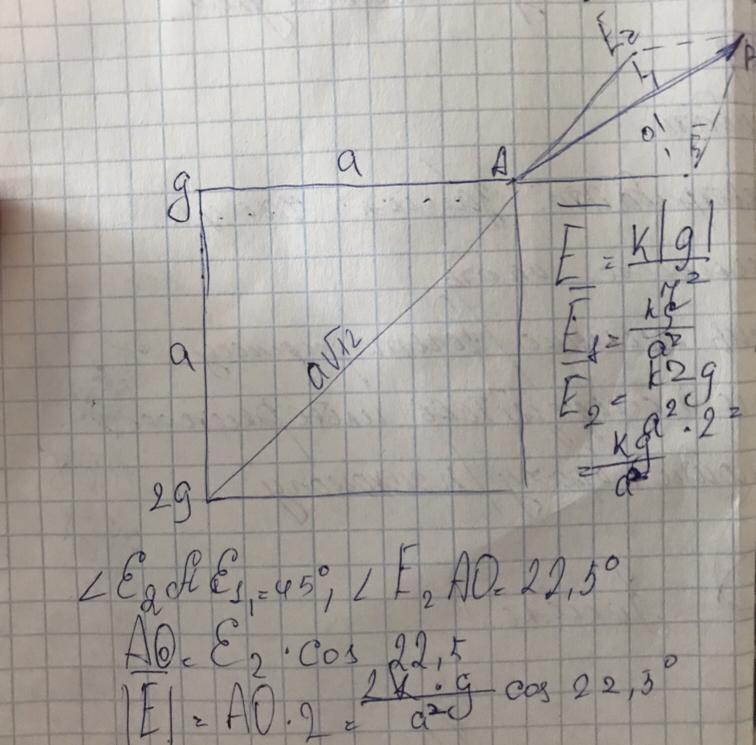 E₂
g a A
E = k|g| / r²
a
a√2
E₁ = kg / a²
E₂ = k2g / a²·2 =
= kg / a²
2g
∠E₂AE₁ = 45°, ∠E₂AO = 22,5°
AO = E₂ · cos 22,5
|E| = AO · 2 = 2k·g / a² cos 22,5°